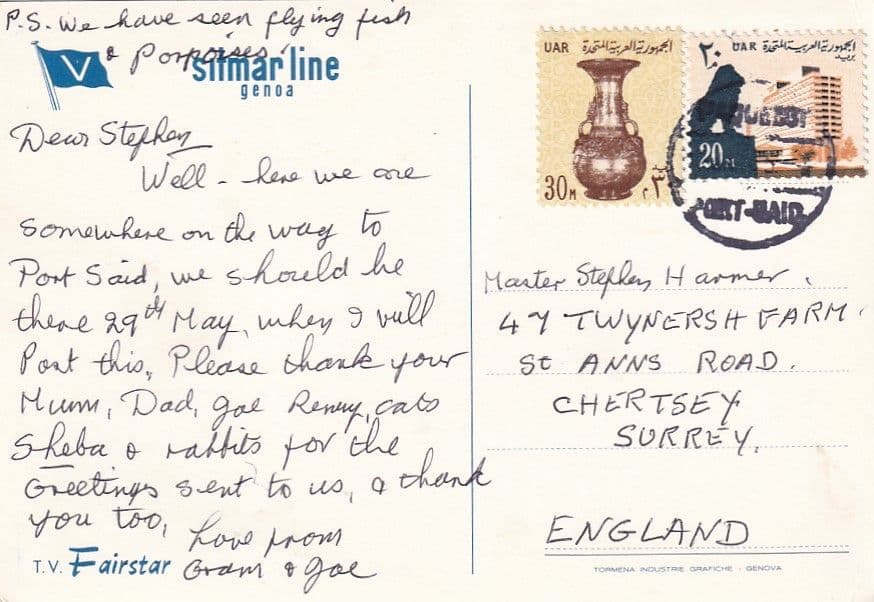 P.S. We have seen flying fish
& Porpoises.
V
sitmar line
genoa
Dear Stephen
Well - here we are
somewhere on the way to
Port Said, we should be
there 29th May, when I will
Post this, Please thank your
Mum, Dad, Joe Renny, cats
Sheba & rabbits for the
Greetings sent to us, & thank
you too,
Love from
Gram & Joe
T.V. Fairstar
UAR الجمهورية العربية المتحدة
30 M
UAR الجمهورية العربية المتحدة
بريد
٢٠
20 M
PAQUEBOT
PORT-SAID
Master Stephen Harmer.
47 TWYNERSH FARM.
St ANNS ROAD.
CHERTSEY
SURREY.
ENGLAND
TORMENA INDUSTRIE GRAFICHE - GENOVA